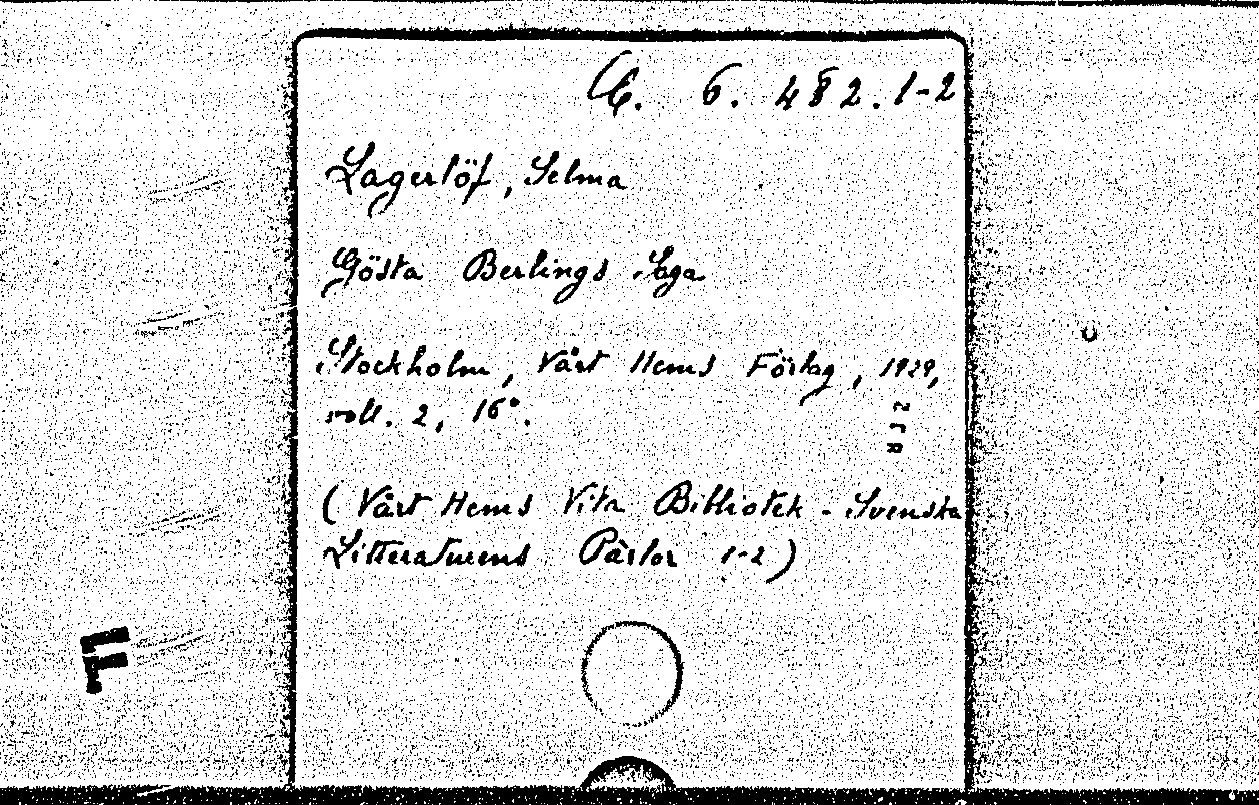 C. 6. 482. 1-2
Lagerlöf, Selma
Gösta Berlings Saga
Stockholm, Vårt Hems Förlag, 1929,
voll. 2, 16°.
(Vårt Hems Vita Bibliotek - Svenska
Litteraturens Pärlor 1-2)
F